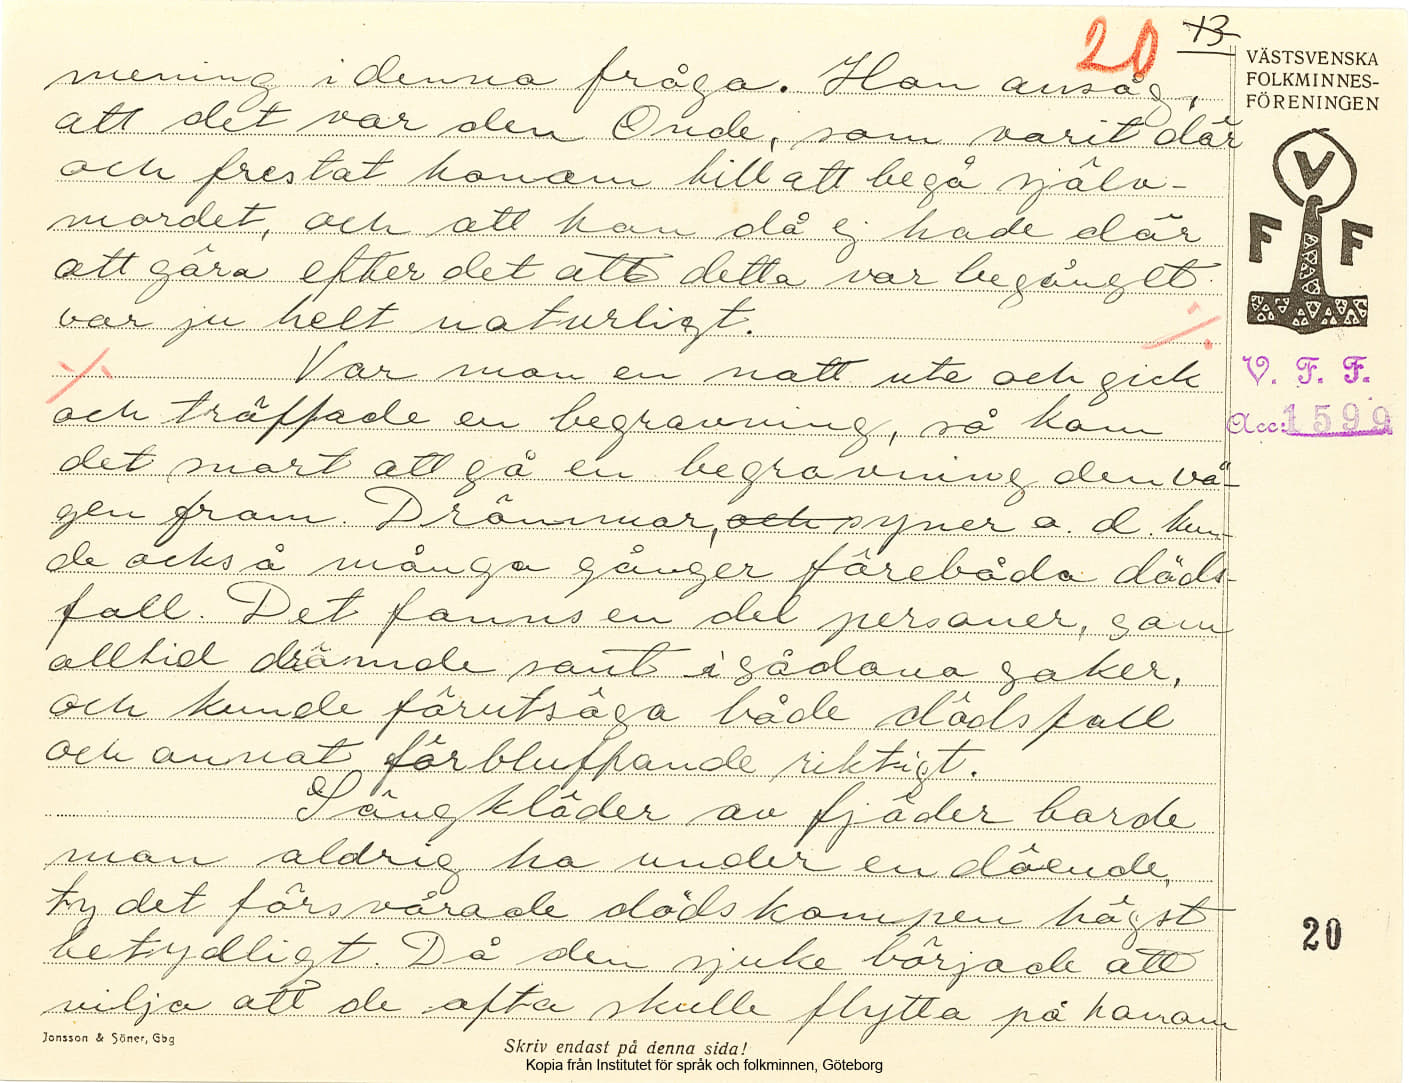 20 13
VÄSTSVENSKA
FOLKMINNES-
FÖRENINGEN
mening i denna fråga. Han ansåg,
att det var den Onde, som varit där
och frestat honom till att begå själv-
mordet, och att han då ej hade där
att göra efter det att detta var begånget
var ju helt naturligt.
Var man en natt ute och gick
och träffade en begravning, så kom
det snart att gå en begravning den vä-
gen fram. Drömmar, och syner o. d. kun-
de också många gånger förebåda döds-
fall. Det fanns en del personer, som
alltid drömde sant i sådana saker,
och kunde förutsäga både dödsfall
och annat förbluffande riktigt.
Sängkläder av fjäder borde
man aldrig ha under en döende,
ty det försvårade dödskampen högst
betydligt. Då den sjuke började att
vilja att de ofta skulle flytta på honom
V
F F
V. F. F.
Acc: 1599
20
Jonsson & Söner, Gbg
Skriv endast på denna sida!
Kopia från Institutet för språk och folkminnen, Göteborg